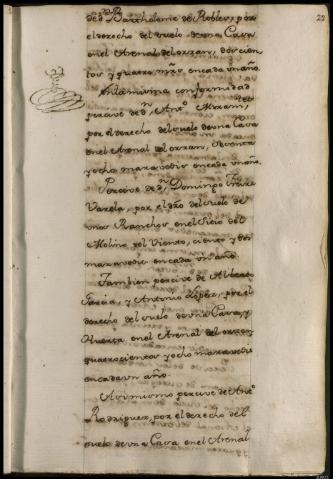 de dn Bartholome de Robles, por
el derecho del suelo de una Casa
en el Arenal del orzan, doscien
tos y quatro mrs en cada un año.
En la misma conformidad
percive de dn Anto
por el derecho del suelo de una Casa
en el Arenal del orzan, sesenta
y ocho maravedis en cada un año.
Percive de dn Domingo
Varela, por el dro del suelo de
unos Ranchos en el Sitio del
Molino del Viento, ciento y dos
maravedis en cada un año
Tambien percive de Alberto
Garcia, y Antonio Lopez, por el
derecho del suelo de una Casa, y
Huerta en el Arenal del orzan
quatrocientos y ocho maravedis
en cada un año.
Asimismo percive de Anto
Rodriguez, por el derecho del
suelo de una Casa en el Arenal